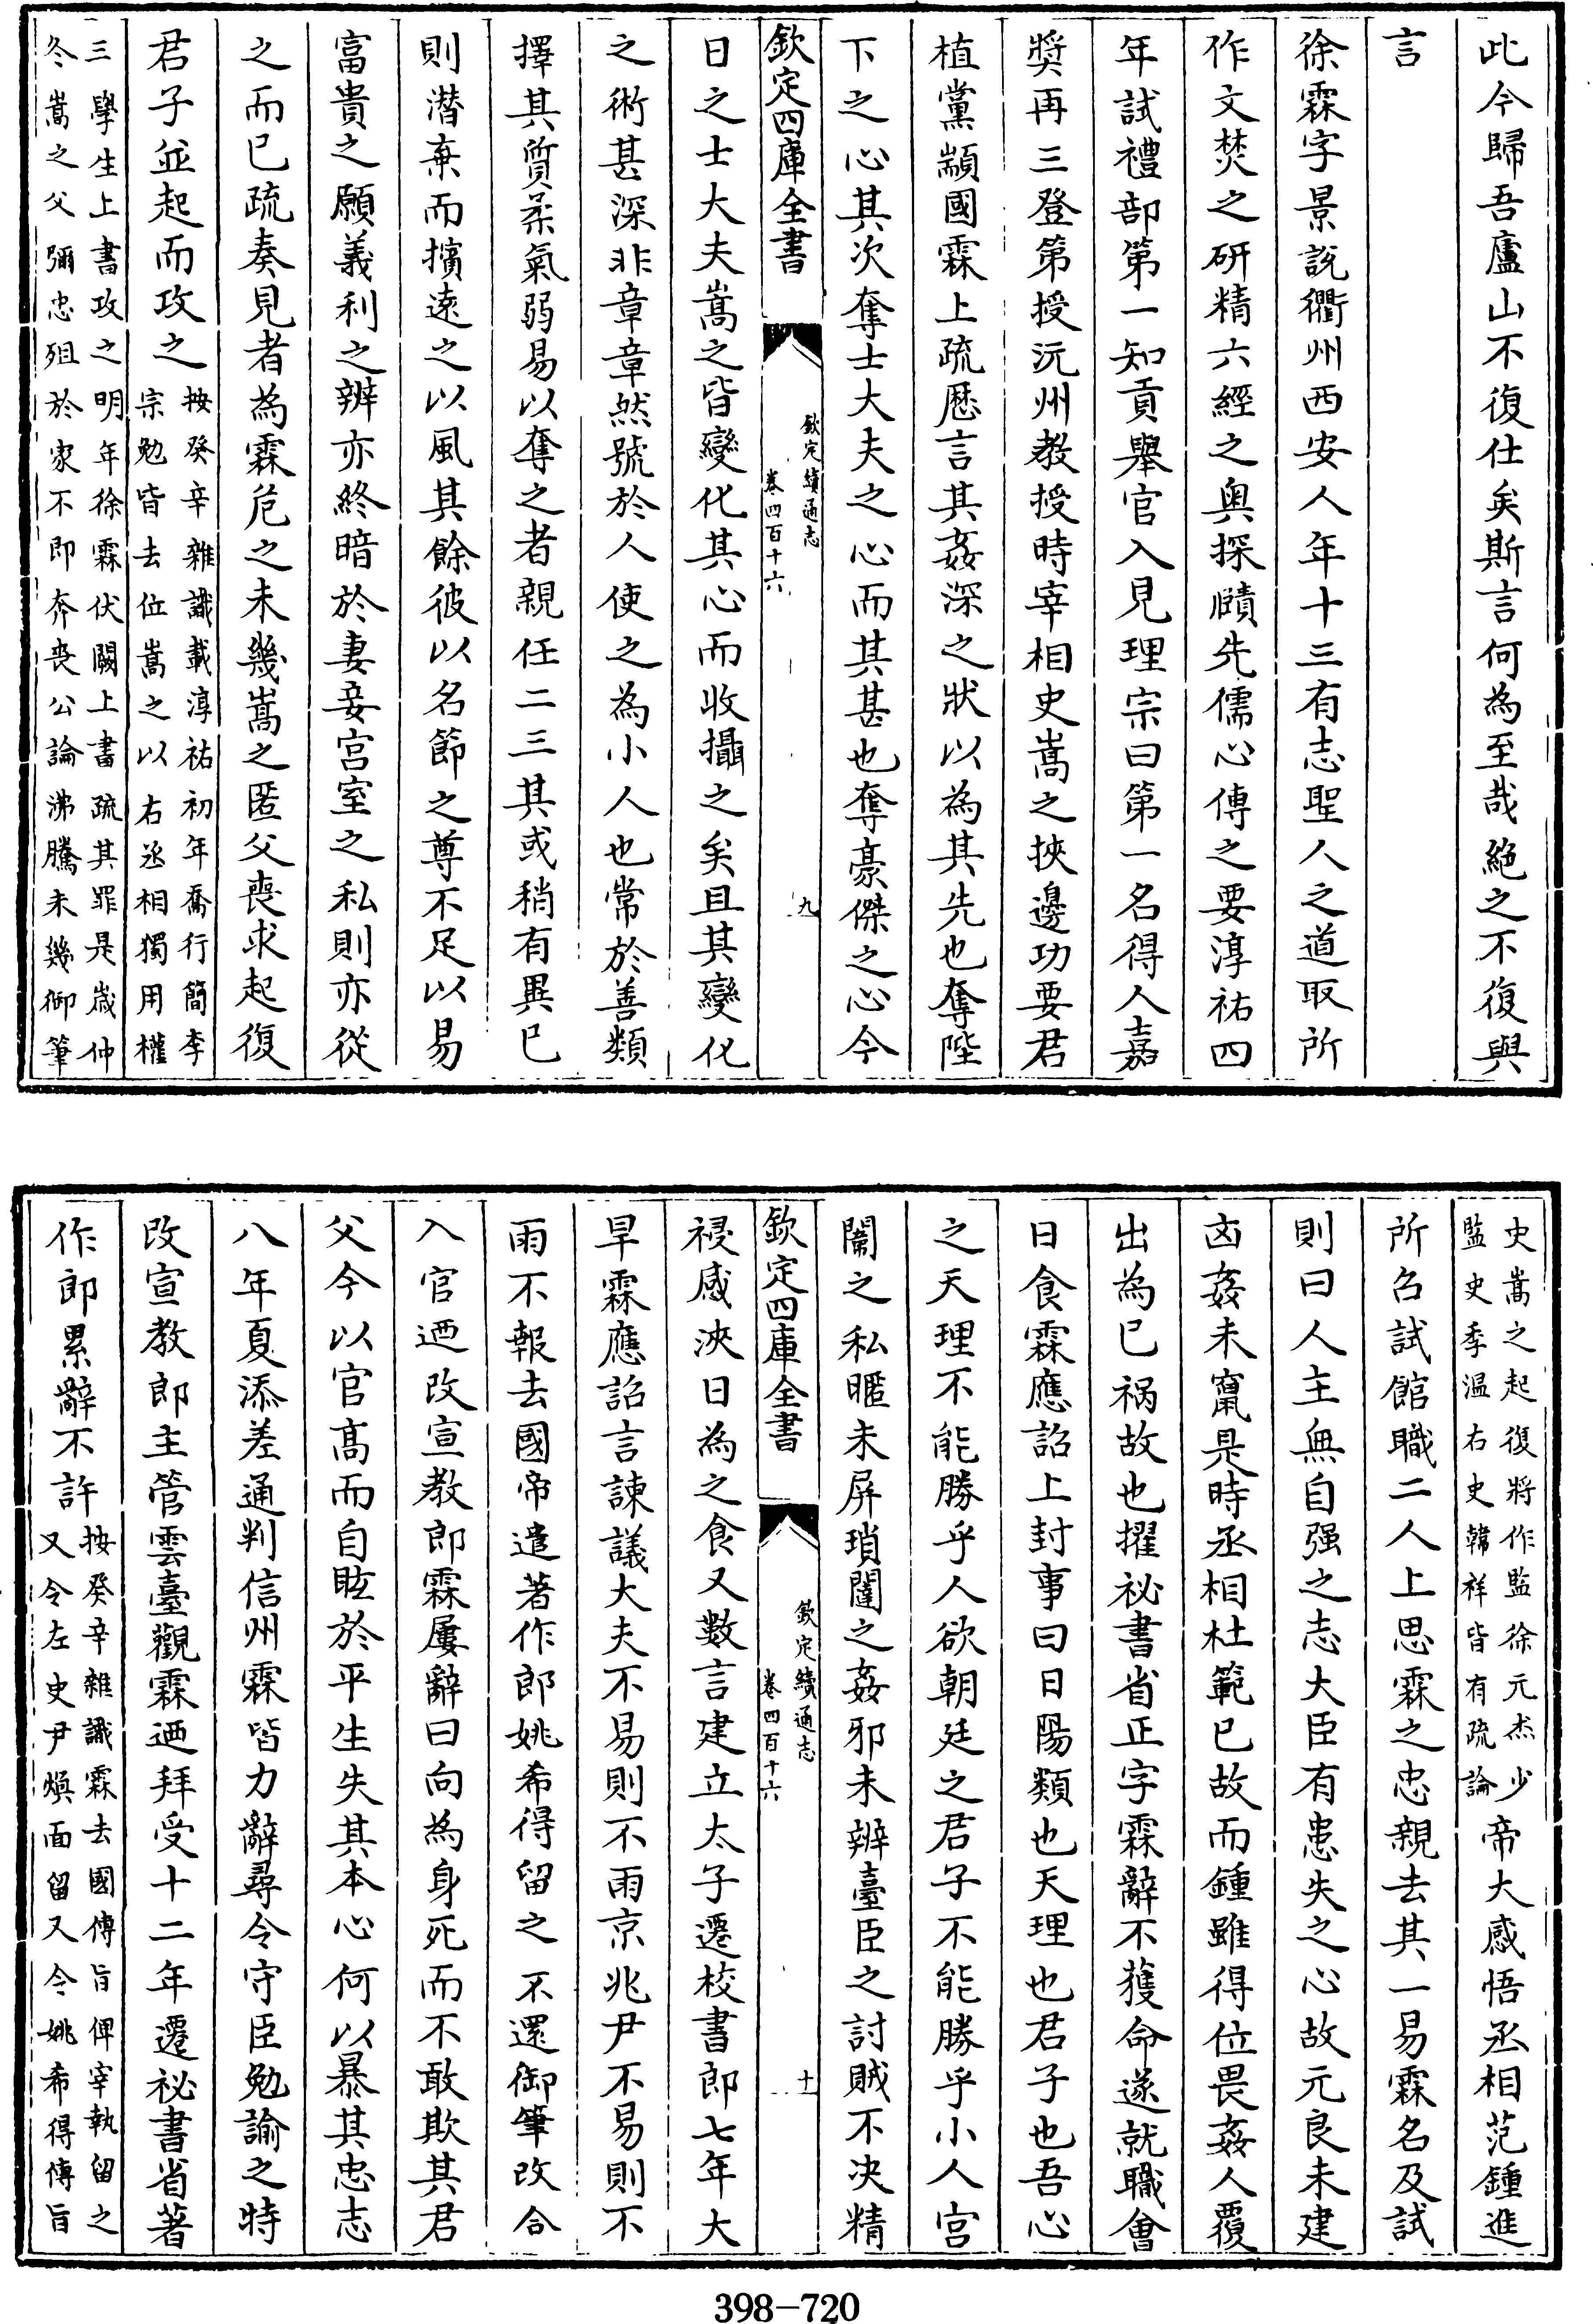 此今歸吾廬山不復仕矣斯言何為至哉絕之不復與
言
徐霖字景說衢州西安人年十三有志聖人之道取所
作文焚之研精六經之奧探賾先儒心傳之要淳祐四
年試禮部第一知貢舉官入見理宗曰第一名得人嘉
奬再三登第授沅州教授時宰相史嵩之挾邊功要君
植黨顓國霖上疏歴言其姦深之狀以為其先也奪陛
下之心其次奪士大夫之心而其甚也奪豪傑之心今
欽定四庫全書
欽定續通志
卷四百十六
九
日之士大夫嵩之皆變化其心而收攝之矣且其變化
之術甚深非章章然號於人使之為小人也常於善類
擇其質柔氣弱易以奪之者親任二三其或稍有異已
則潛棄而擯遠之以風其餘彼以名節之尊不足以易
富貴之願義利之辨亦終暗於妻妾宮室之私則亦從
之而已疏奏見者為霖危之未幾嵩之匿父喪求起復
君子並起而攻之
按癸辛雜識載淳祐初年喬行簡李
宗勉皆去位嵩之以右丞相獨用權
三學生上書攻之明年徐霖伏闕上書疏其罪是嵗仲
冬嵩之父彌忠殂於家不即奔喪公論沸騰未幾御筆
史嵩之起復將作監徐元杰少
監史季温右史韓祥皆有疏論
帝大感悟丞相范鍾進
所召試館職二人上思霖之忠親去其一易霖名及試
則曰人主無自强之志大臣有患失之心故元良未建
凶姦未竄是時丞相杜範已故而鍾雖得位畏姦人覆
出為已禍故也擢祕書省正字霖辭不獲命遂就職會
日食霖應詔上封事曰日陽類也天理也君子也吾心
之天理不能勝乎人欲朝廷之君子不能勝乎小人宮
闈之私暱未屏瑣闥之姦邪未辨臺臣之討賊不决精
欽定四庫全書
欽定續通志
卷四百十六
十
祲感浹日為之食又數言建立太子遷校書郎七年大
旱霖應詔言諫議大夫不易則不雨京兆尹不易則不
雨不報去國帝遣著作郎姚希得留之不還御筆改合
入官迺改宣教郎霖屢辭曰向為身死而不敢欺其君
父今以官髙而自眩於平生失其本心何以暴其忠志
八年夏添差通判信州霖皆力辭尋令守臣勉諭之特
改宣教郎主管雲臺觀霖迺拜受十二年遷祕書省著
作郎累辭不許
按癸辛雜識霖去國傳旨俾宰執留之
又令左史尹煥面留又令姚希得傳旨
398-720